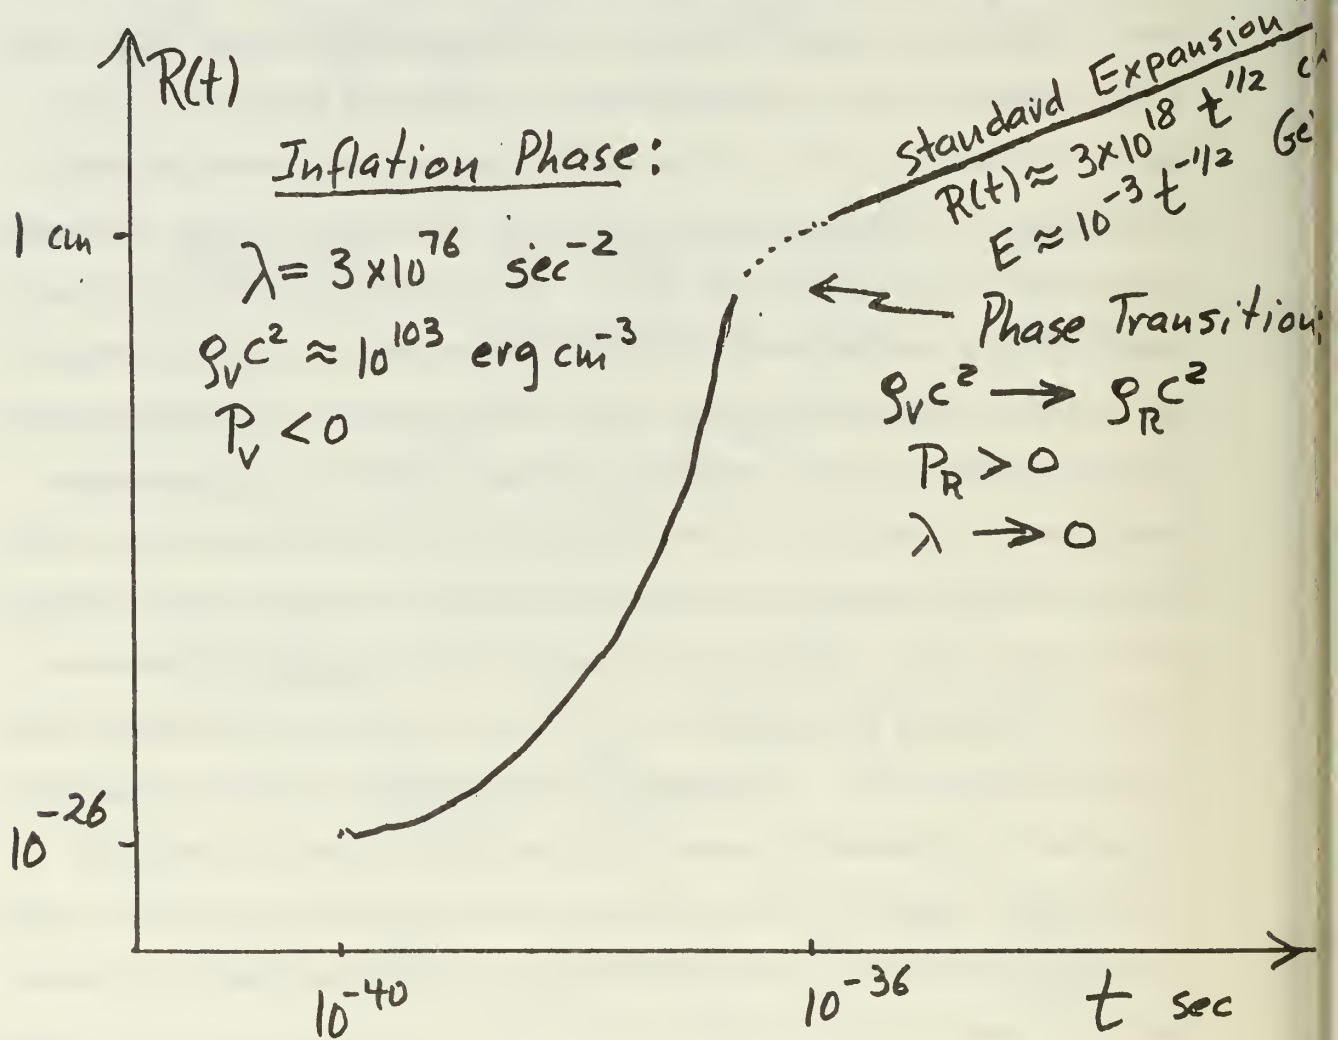 R(t)
Inflation Phase:
λ = 3 x 10^76 sec^-2
ρ_V c^2 ≈ 10^103 erg cm^-3
P_V < 0
Standard Expansion
R(t) ≈ 3×10^18 t^1/2
E ≈ 10^-3 t^-1/2
Phase Transition:
ρ_V c^2 → ρ_R c^2
P_R > 0
λ → 0
1 cm
10^-26
10^-40
10^-36
t sec